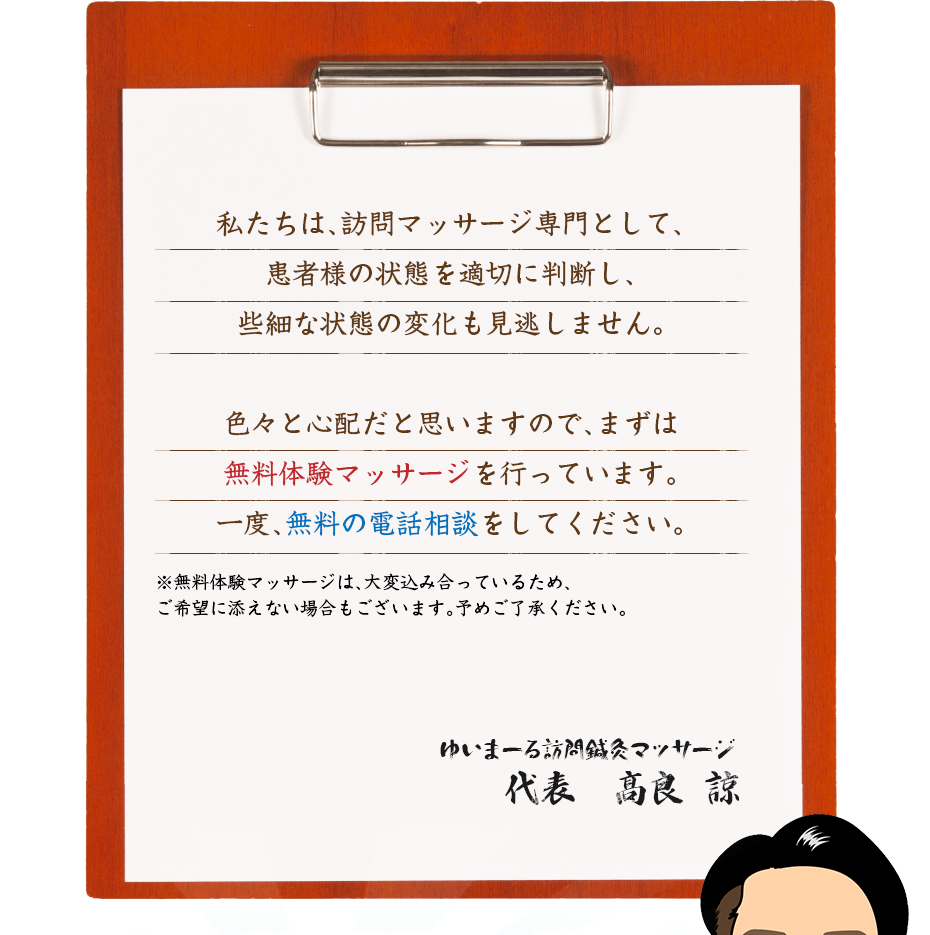 私たちは、訪問マッサージ専門として、
患者様の状態を適切に判断し、
些細な状態の変化も見逃しません。
色々と心配だと思いますので、まずは
無料体験マッサージを行っています。
一度、無料の電話相談をしてください。
※無料体験マッサージは、大変込み合っているため、
ご希望に添えない場合もございます。予めご了承ください。
ゆいまーる訪問鍼灸マッサージ
代表　髙良　諒